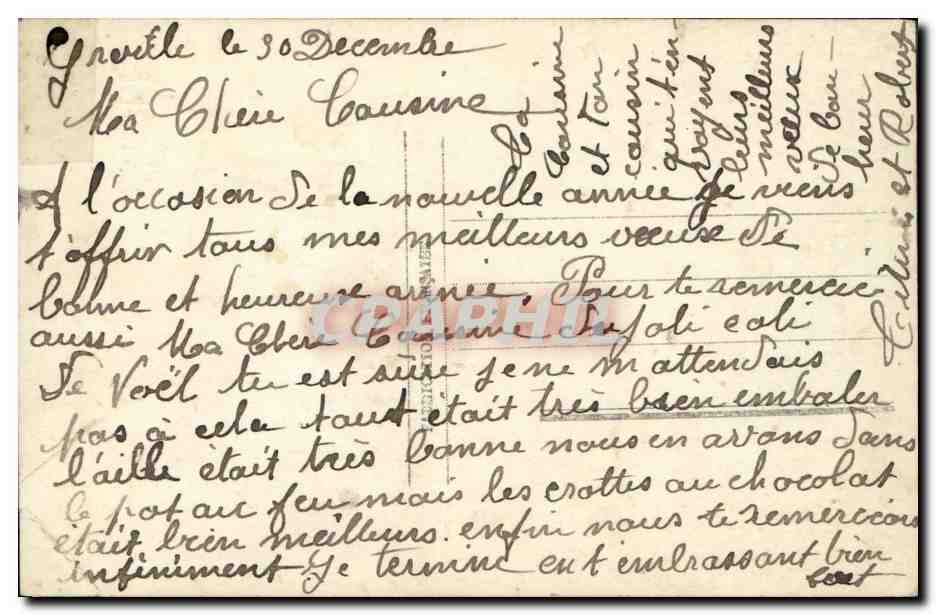 le 30 Decembre
Ma Chère Cousine
A l'occasion de la nouvelle année je viens
t'offrir tous mes meilleurs vœux de
bonne et heureuse année. Pour te remercie
aussi Ma Chere Cousine du joli coli
de Noël tu est sure je ne m attendais
pas a cela tout était très bien embaler
l'aille était très bonne nous en avons dans
le pot au feu mais les crottes au chocolat
était bien meilleurs. enfin nous te remercions
infiniment Je termine en t embrassant bien
fort
Ta
Cousine
et ton
cousin
qui t'en
voyent
leurs
meilleurs
vœux
de bon-
heur
et Robert
CPARHR